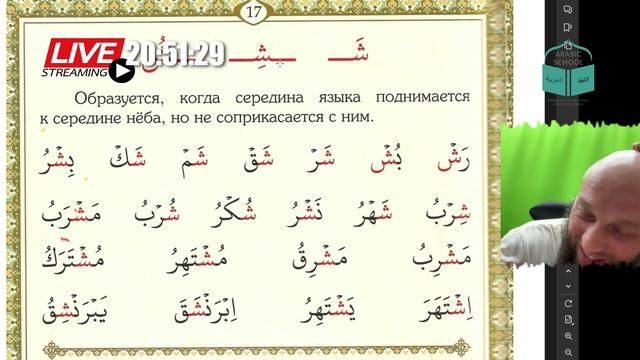 17
LIVE 20:51:29
STREAMING
شَـ ـشِـ ـشُ
ARABIC
SCHOOL
اللغة العربية
Образуется, когда середина языка поднимается
к середине нёба, но не соприкасается с ним.
رَشْ بُشْ شَرْ شَقْ شَمْ شَكْ بِشْرُ
شِرْبُ شَهْرُ نَشْرُ شُكْرُ شُرْبُ مَشْرَبُ
مَشْرِبُ مَشْرِقُ مُشْتَهِرُ مُشْتَرَكُ
اِشْتَهَرَ يَشْتَهِرُ اِبْرَنْشَقَ يَبْرَنْشِقُ